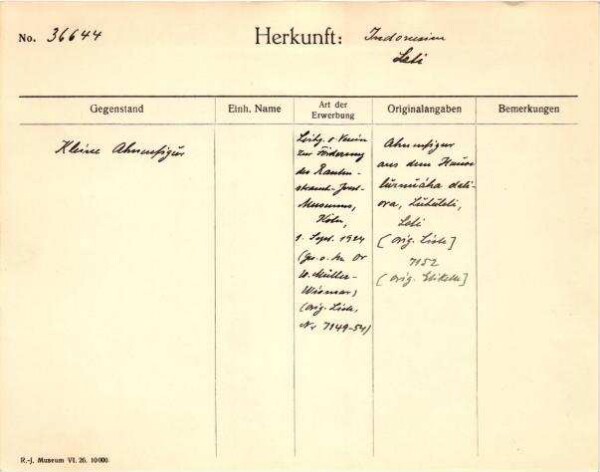 No. 36644
Herkunft: Indonesien
Leti
Gegenstand
Einh. Name
Art der
Erwerbung
Originalangaben
Bemerkungen
Kleine Ahnenfigur
Leihg. v. Verein
zur Förderung
des Rauten-
strauch-Joest-
Museums,
Köln,
1. Sept. 1924
(ges. v. Dr
W. Müller-
Wismar)
(orig. Liste,
Nr 7149-54)
Ahnenfigur
aus dem Hause
lūrnuáha deli-
ora, Lūhuleli,
Leti
(orig. Liste]
7152
(orig. Etikett]
R.-J. Museum VI. 26. 10000.